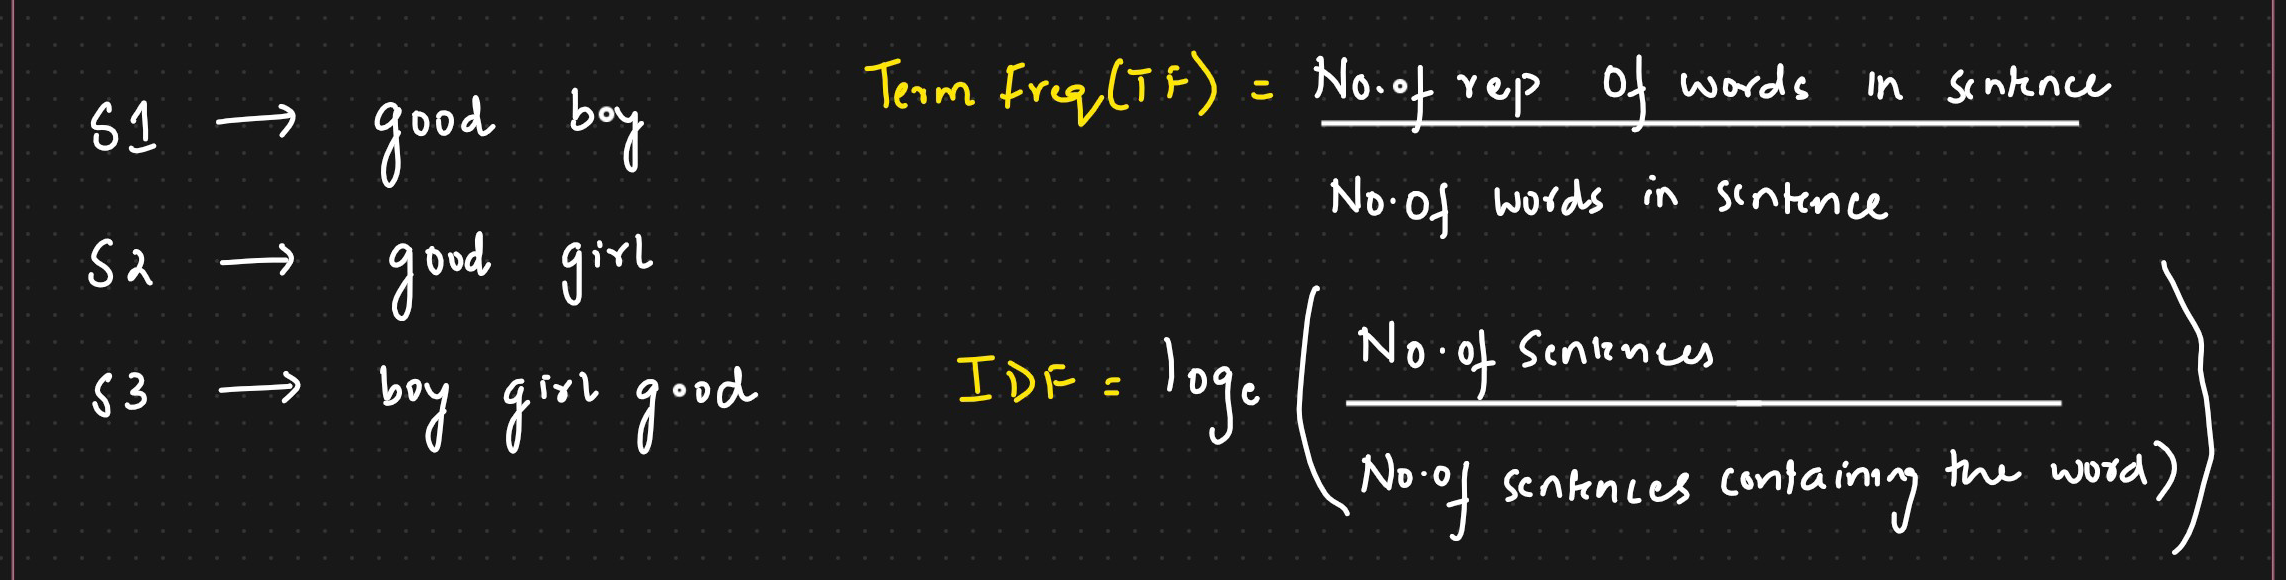 S1 → good boy
S2 → good girl
S3 → boy girl good
Term freq(TF) = No. of rep of words in sentence
No. of words in sentence
IDF = loge ( No. of Sentences
No. of sentences containing the word) )